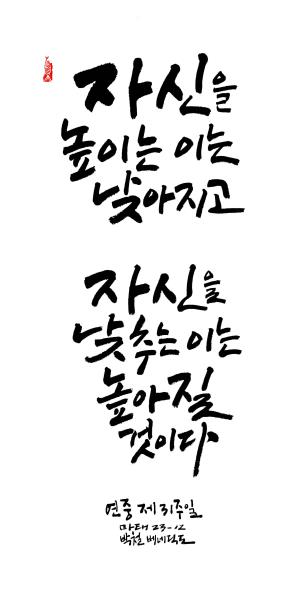 자신을
높이는 이는
낮아지고
자신을
낮추는 이는
높아질
것이다
연중 제31주일
마태 23-12
박철 베네딕도